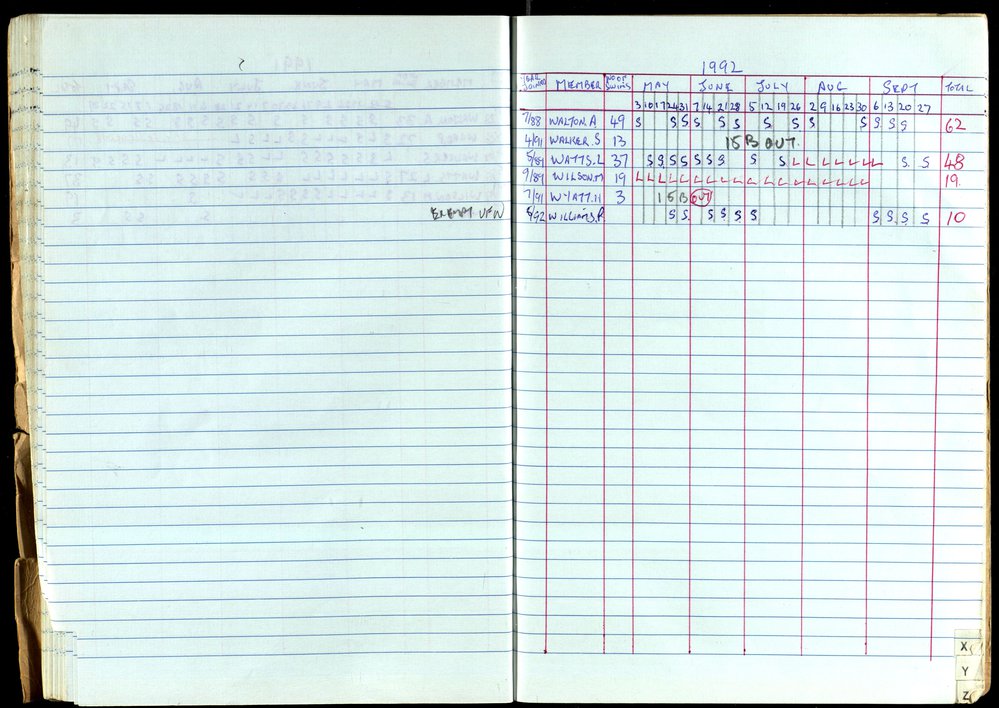 1992
YEAR JOINED MEMBER NO OF SWIMS MAY JUNE JULY AUG SEPT TOTAL
3 10 17 24 31 7 14 21 28 5 12 19 26 2 9 16 23 30 6 13 20 27
7/88 WALTON. A 49 S S S S S S S S S S S S S 62
4/91 WALKER. S 13 15 B OUT.
5/89 WATTS. L 37 S S S S S S S S S L L L L L L L S S 48
9/89 WILSON. M 19 L L L L L L L L L L L L L L L L L L 19.
7/91 WYATT. H 3 15 B OUT
EXEMPT 8/92 WILLIAMS. P. S S S S S S S S S S 10
X
Y
Z